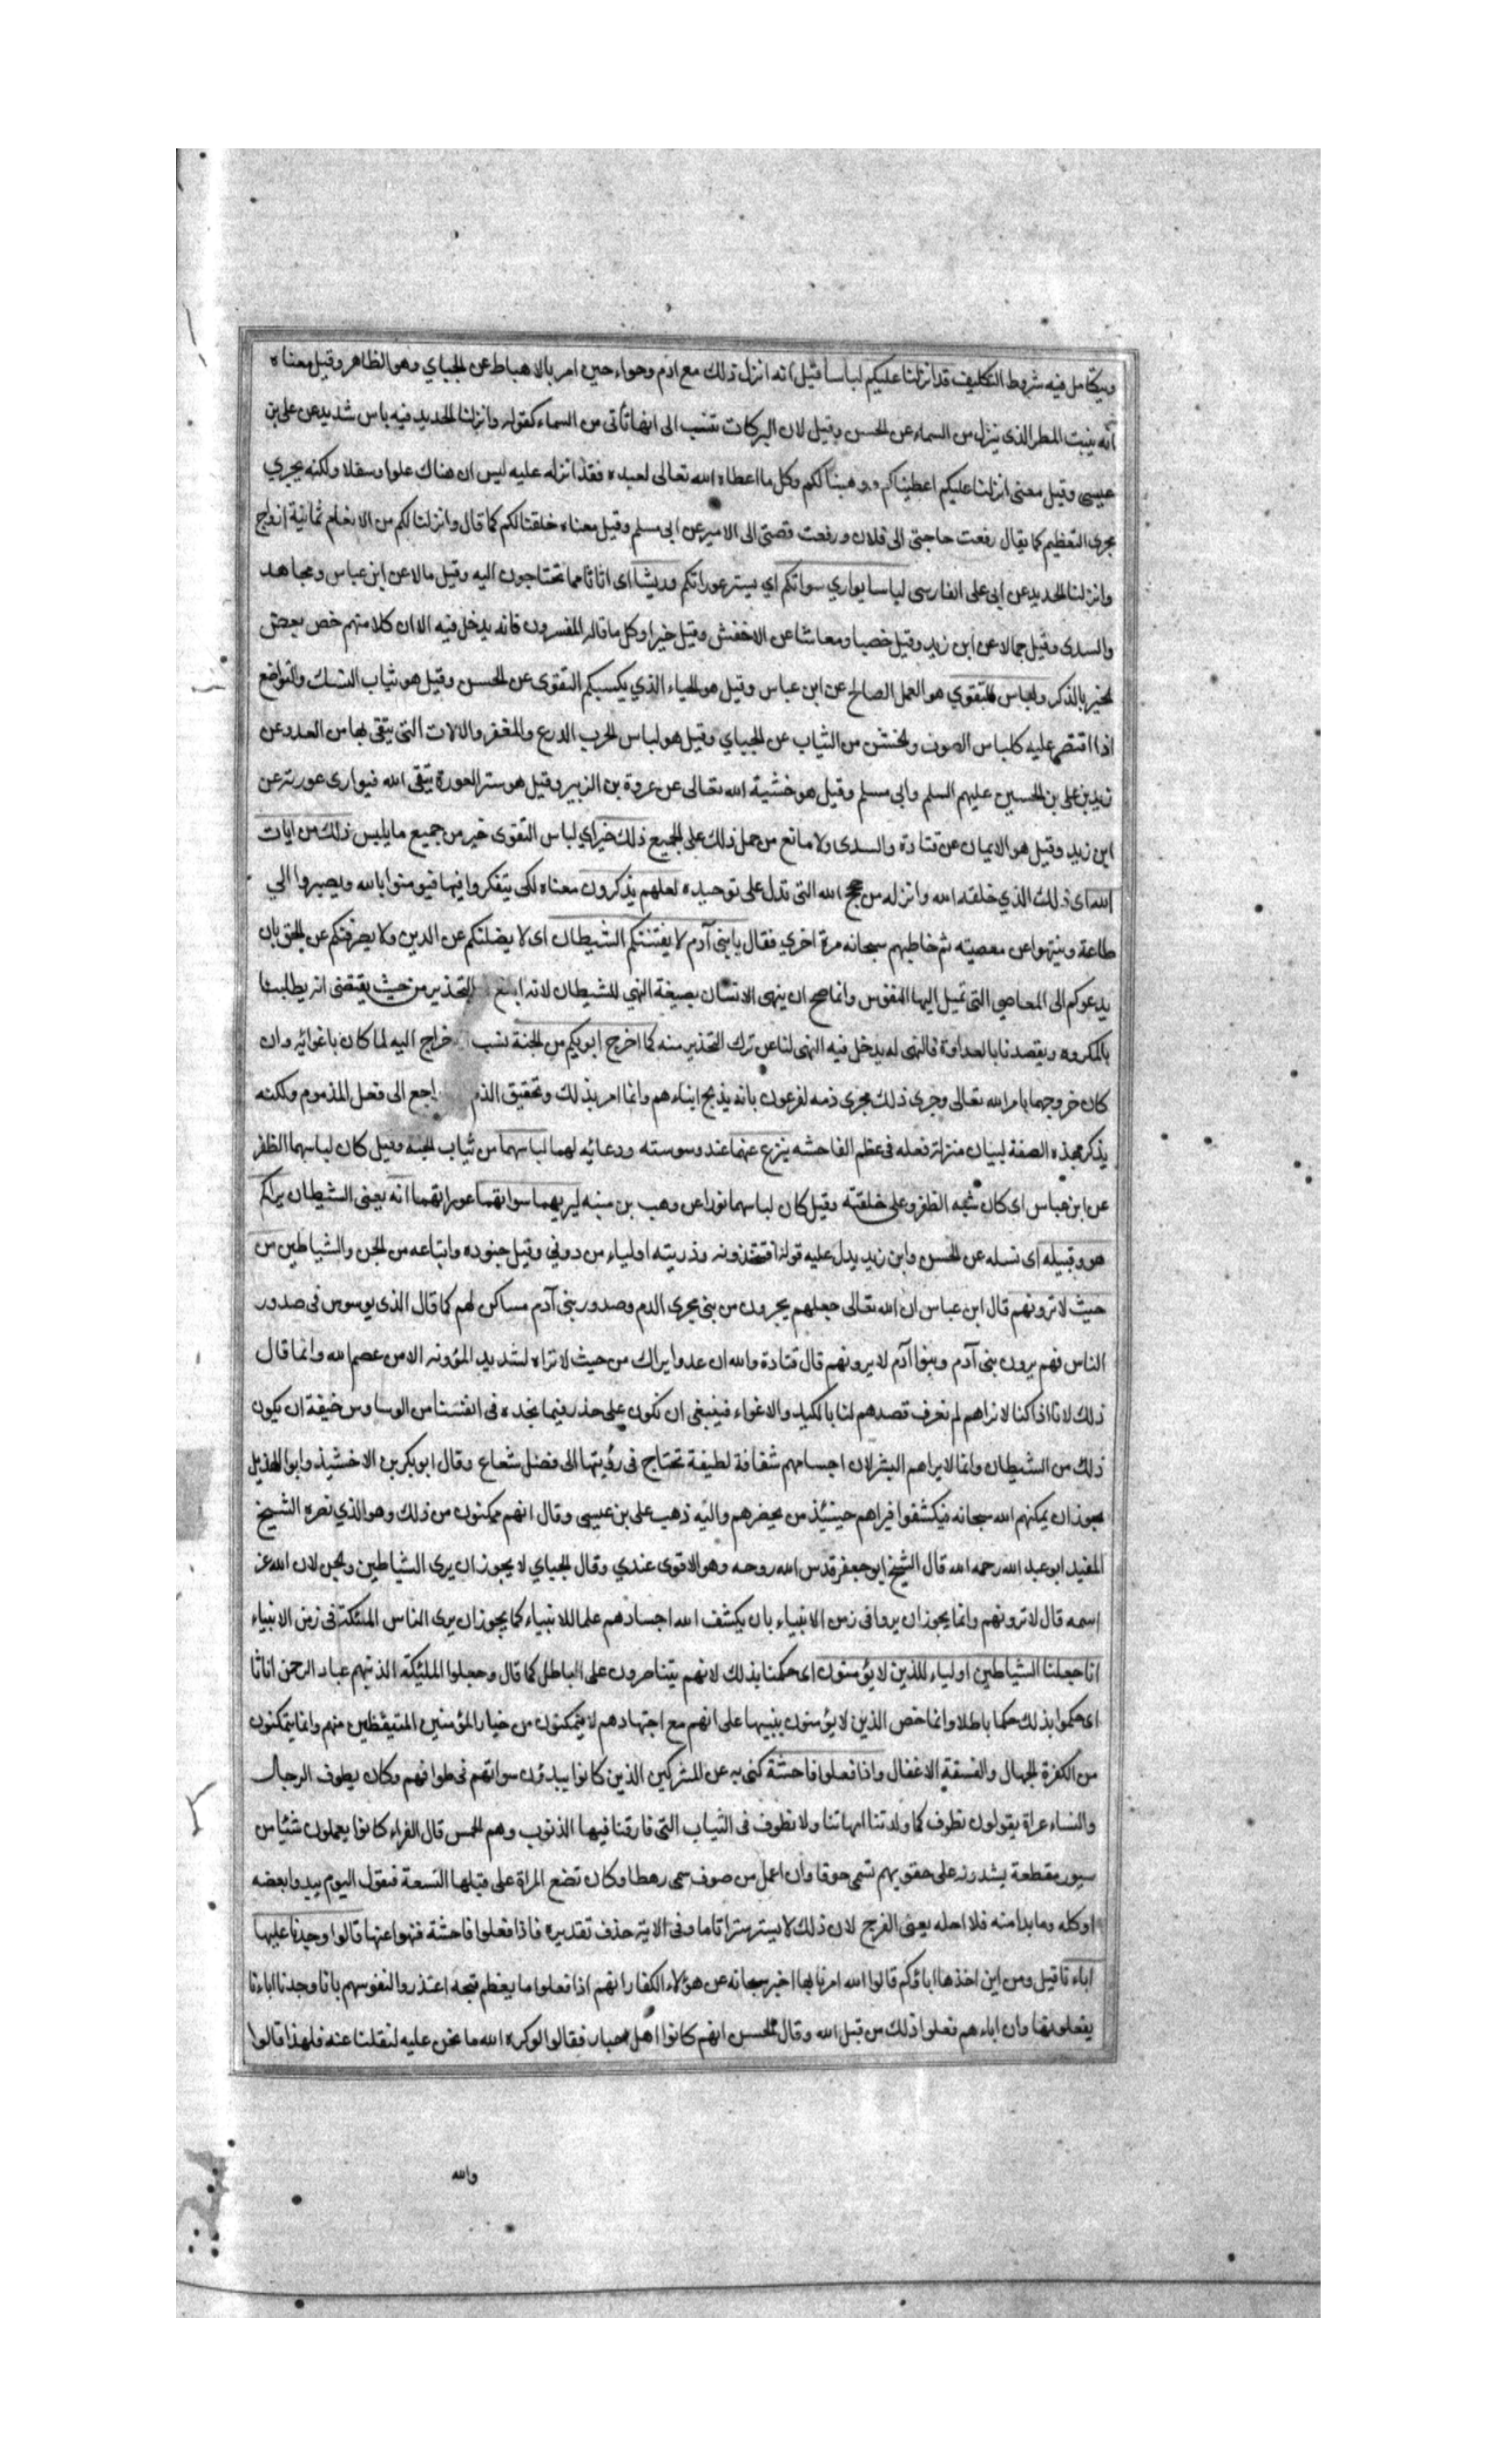 ويتكامل فيه شروط التكليف قد انزلنا عليكم لباسا قيل انه انزل ذلك مع ادم وحواء حين امر بالاهباط عن الجباي وهو الظاهر وقيل معناه
انه ينبت المطر الذى ينزل من السماء عن الحسن وقيل لان البركات تنسب الى انها تأتى من السماء كقوله وانزلنا الحديد فيه باس شديد عن على بن
عيسى وقيل معنى انزلنا عليكم اعطيناكم ووهبنا لكم وكل ما اعطاه الله تعالى لعبده فقد انزله عليه ليس ان هناك علوا وسفلا ولكنه يجري
مجرى التعظيم كما يقال رفعت حاجتى الى فلان ورفعت قصتى الى الامير عن ابى مسلم وقيل معناه خلقنا لكم كما قال وانزلنا لكم من الانعام ثمانية ازواج
وانزلنا الحديد عن ابى على الفارسى لباسا يواري سواتكم اي يستر عوراتكم وريشا اى اثاثا مما تحتاجون اليه وقيل مالا عن ابن عباس ومجاهد
والسدى وقيل جمالا عن ابن زيد وقيل خصبا ومعاشا عن الاخفش وقيل خيرا وكل ما قاله المفسرون فانه يدخل فيه الا ان كلا منهم خص بعض
الخير بالذكر ولباس التقوي هو العمل الصالح عن ابن عباس وقيل هو الحياء الذي يكسبكم التقوى عن الحسن وقيل هو ثياب النسك والتواضع
اذا اقتصر عليه كلباس الصوف والخشن من الثياب عن الجباي وقيل هو لباس الحرب الدرع والمغفر والالات التى يتقى بها من العدو عن
زيد بن على بن الحسين عليهم السلم وابى مسلم وقيل هو خشية الله تعالى عن عروة بن الزبير وقيل هو ستر العورة يتقى الله فيوارى عورته عن
ابن زيد وقيل هو الايمان عن قتادة والسدى ولا مانع من حمل ذلك على الجميع ذلك خير اي لباس التقوى خير من جميع ما يلبس ذلك من ايات
الله اى ذلك الذي خلقه الله وانزله من حجج الله التى تدل على توحيده لعلهم يذكرون معناه لكى يتفكروا فيها فيومنوا بالله ويصيروا الي
طاعة وينتهوا عن معصيته ثم خاطبهم سبحانه مرة اخري فقال يا بنى آدم لا يفتننكم الشيطان اى لا يضلنكم عن الدين ولا يصرفنكم عن الحق بان
يدعوكم الى المعاصي التى تميل اليها النفوس وانما صح ان ينهى الانسان بصيغة النهي للشيطان لانه ابلغ التحذير من حيث يقتضى انه يطلبنا
بالمكروه ويقصدنا بالعداوة فالنهى له يدخل فيه النهى لنا عن ترك التحذير منه كما اخرج ابويكم من الجنة نسب خراج اليه لما كان باغوائه وان
كان خروجهما بامر الله تعالى وجرى ذلك مجرى ذمه لفرعون بانه يذبح ابناءهم وانما امر بذلك وتحقيق الذم اجع الى فعل المذموم ولكنه
يذكر بهذه الصفة لبيان منزلة فعله فى عظم الفاحشه ينزع عنهما عند وسوسته ودعائه لهما لباسهما من ثياب الجنة وقيل كان لباسهما الظفر
عن ابن عباس اى كان شبه الظفر وعلى خلقته وقيل كان لباسهما نورا عن وهب بن منبه ليريهما سواتهما عوراتهما انه يعنى الشيطان يراكم
هو وقبيله اى نسله عن الحسن وابن زيد يدل عليه قوله افتتخذونه وذريته اولياء من دوني وقيل جنوده واتباعه من الجن والشياطين من
حيث لا ترونهم قال ابن عباس ان الله تعالى جعلهم يجرون من بنى مجرى الدم وصدور بنى آدم مساكن لهم كما قال الذى يوسوس فى صدور
الناس فهم يرون بنى آدم وبنوا آدم لا يرونهم قال قتادة والله ان عدوا يراك من حيث لا تراه لشديد المؤونه الا من عصم الله وانما قال
ذلك لانا اذا كنا لا نراهم لم نعرف قصدهم لنا بالكيد والاغواء فينبغى ان نكون على حذر فيما نجده فى انفسنا من الوساوس خيفة ان يكون
ذلك من الشيطان وانما لا يراهم البشر لان اجسامهم شفافة لطيفة تحتاج فى رؤيتها الى فضل شعاع وقال ابو بكر بن الاخشيذ وابو الهذيل
يجوز ان يمكنهم الله سبحانه فيكشفوا فيراهم حينئذ من يحضرهم واليه ذهب على بن عيسى وقال انهم ممكنون من ذلك وهو الذي نصره الشيخ
المفيد ابو عبد الله رحمه الله قال الشيخ ابو جعفر قدس الله روحه وهو الاقوى عندي وقال الجباي لا يجوز ان يرى الشياطين والجن لان الله عز
اسمه قال لا ترونهم وانما يجوز ان يروا فى زمن الانبياء بان يكشف الله اجسادهم علما للانبياء كما يجوز ان يرى الناس الملئكة فى زمن الانبياء
انا جعلنا الشياطين اولياء للذين لا يؤمنون اى حكمنا بذلك لانهم يتناصرون على الباطل كما قال وجعلوا الملئيكة الذينهم عباد الرحمن اناثا
اى حكموا بذلك حكما باطلا وانما خص الذين لا يؤمنون ينبيها على انهم مع اجتهادهم لا يتمكنون من خيار المؤمنين المتيقظين منهم وانما يتمكنون
من الكفرة الجهال والفسقة الاغفال واذا فعلوا فاحشة كنى به عن المشركين الذين كانوا يبدون سواتهم فى طوافهم وكان يطوف الرجال
والنساء عراة يقولون نطوف كما ولدتنا امهاتنا ولا نطوف فى الثياب التى قارفنا فيها الذنوب وهم الحمس قال الفراء كانوا يعملون شئيا من
سيور مقطعة يشدونه على حقويهم تسمى حوفا وان اعمل من صوف سمى رهطا وكان تضع المراة على قبلها النسعة فتقول اليوم يبدوا بعضه
اوكله وما بدا منه فلا احله يعنى الفرج لان ذلك لا يستر سترا تاما وفى الاية حذف تقديره فاذا فعلوا فاحشة فنهوا عنها قالوا وجدنا عليها
اباءنا قيل ومن اين اخذها اباؤكم قالوا الله امرنا بها اخبر سبحانه عن هؤلاء الكفار انهم اذا فعلوا ما يعظم قبحه اعتذروا لنفوسهم بانا وجدنا اباءنا
يفعلونها وان اباءهم فعلوا ذلك من قبل الله وقال الحسن انهم كانوا اهل اجبار فقالوا لو كره الله ما نحن عليه لنقلنا عنه فلهذا قالوا
والله